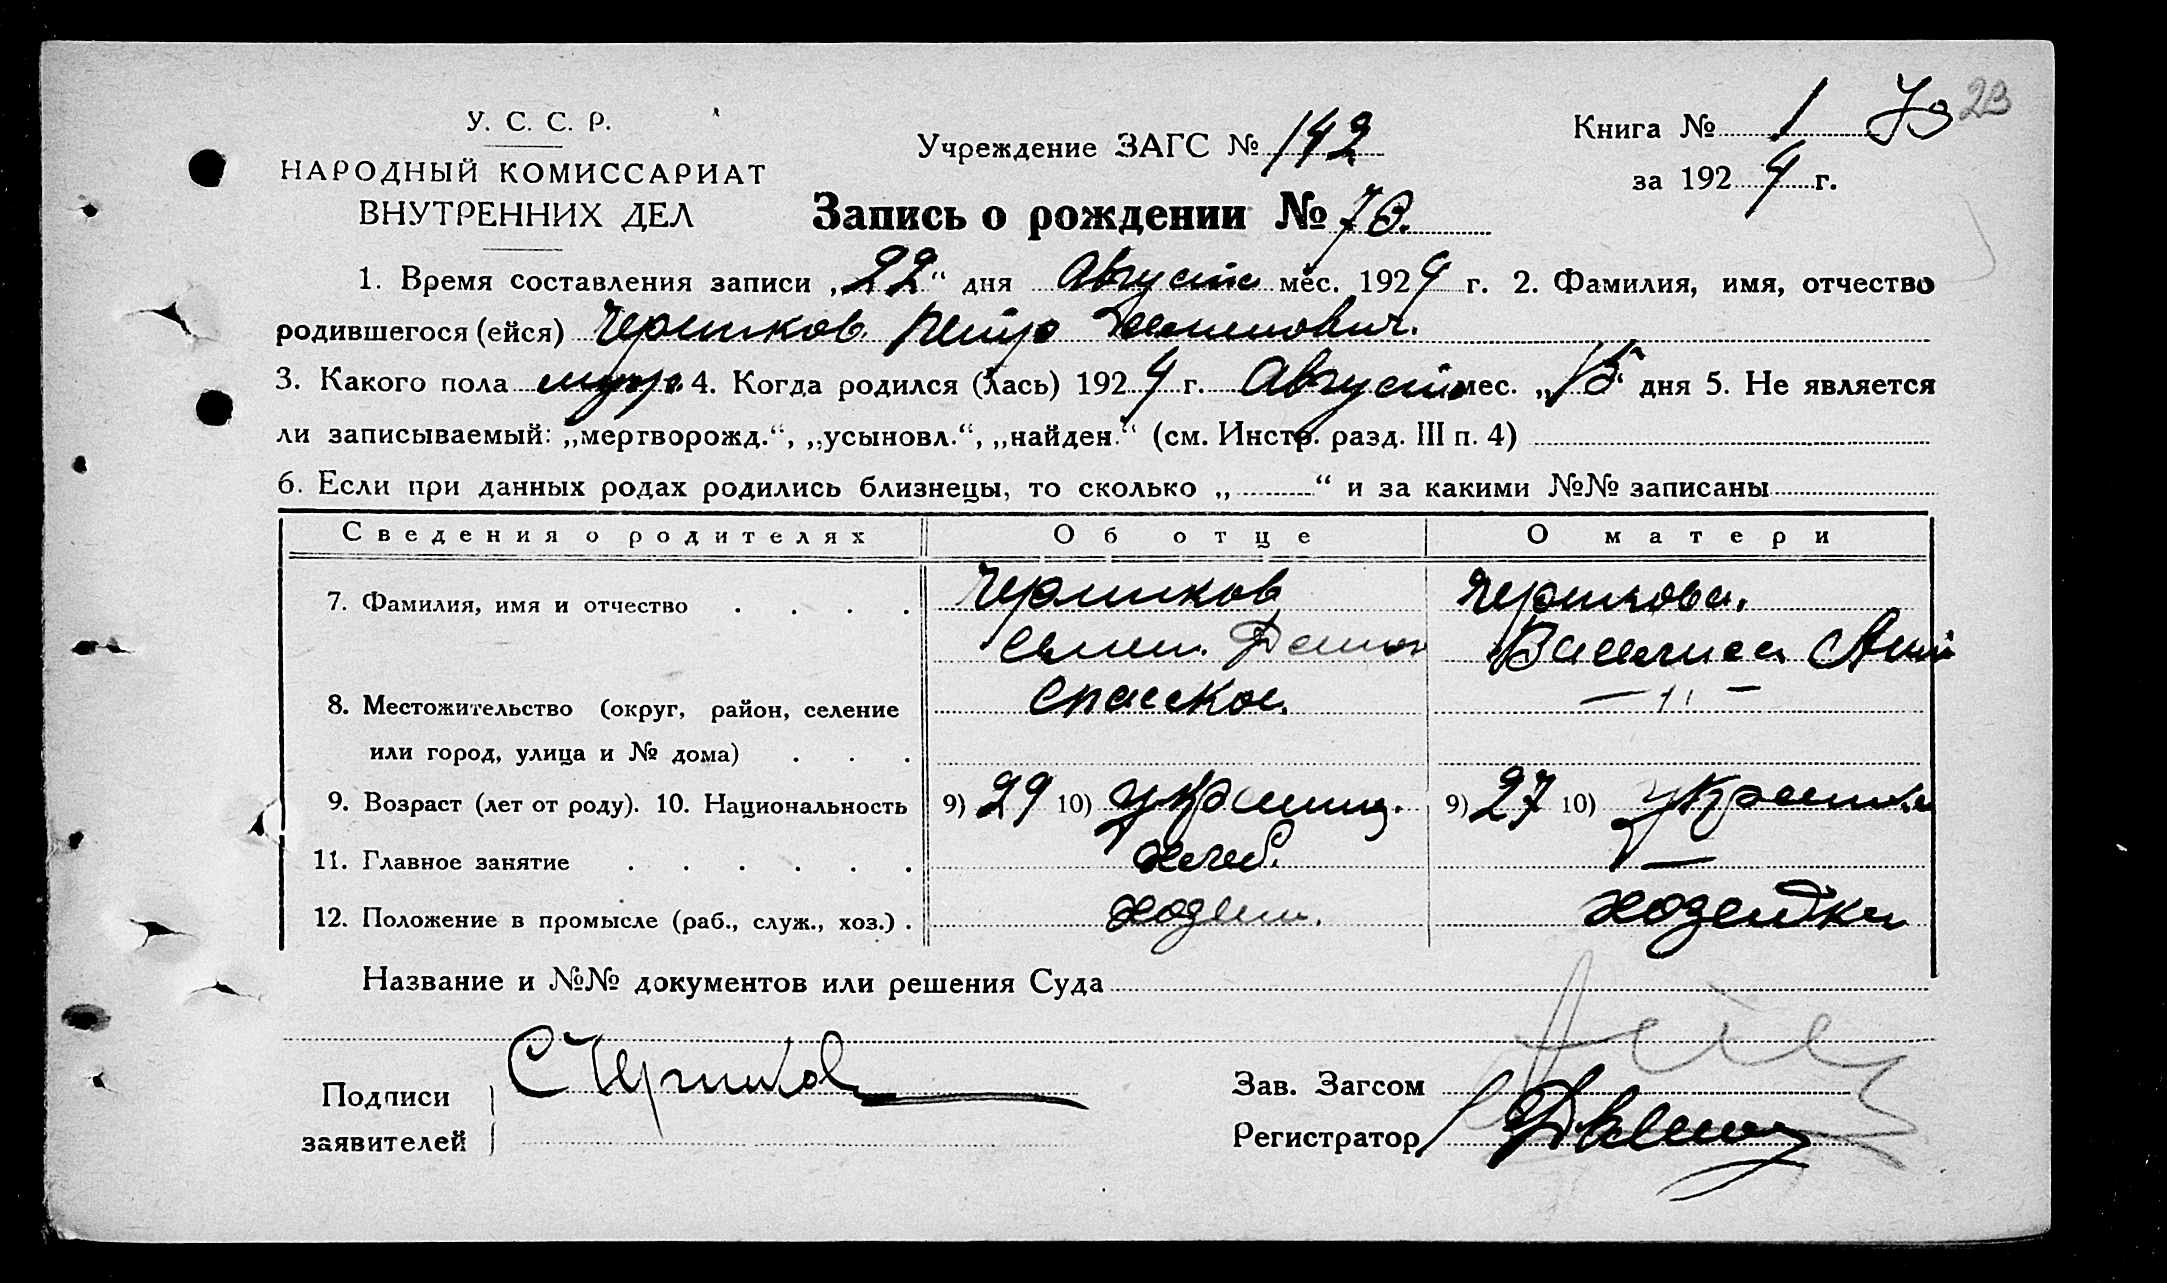 У. С. С. Р.
НАРОДНЫЙ КОМИССАРИАТ
ВНУТРЕННИХ ДЕЛ
Учреждение ЗАГС № 142
Книга № 1 73 23
за 1924 г.
Запись о рождении № 73.
1. Время составления записи „22“ дня Августа мес. 1924 г. 2. Фамилия, имя, отчество
родившегося (ейся) Черников Петр
3. Какого пола муж. 4. Когда родился (лась) 1924 г. Августа мес. „15“ дня 5. Не является
ли записываемый: „мертворожд.“, „усыновл.“, „найден.“ (см. Инстр. разд. III п. 4)
6. Если при данных родах родились близнецы, то сколько „ “ и за какими №№ записаны
Сведения о родителях Об отце О матери
7. Фамилия, имя и отчество . . . . Черников Черникова.
Василиса
8. Местожительство (округ, район, селение Спасское. — " —
или город, улица и № дома) . . .
9. Возраст (лет от роду). 10. Национальность 9) 29 10) украинец. 9) 27 10) украинка
11. Главное занятие . . . . . . хлеб. —
12. Положение в промысле (раб., служ., хоз.) . хозяин. хозяйка
Название и №№ документов или решения Суда
Подписи С Черников Зав. Загсом
заявителей Регистратор